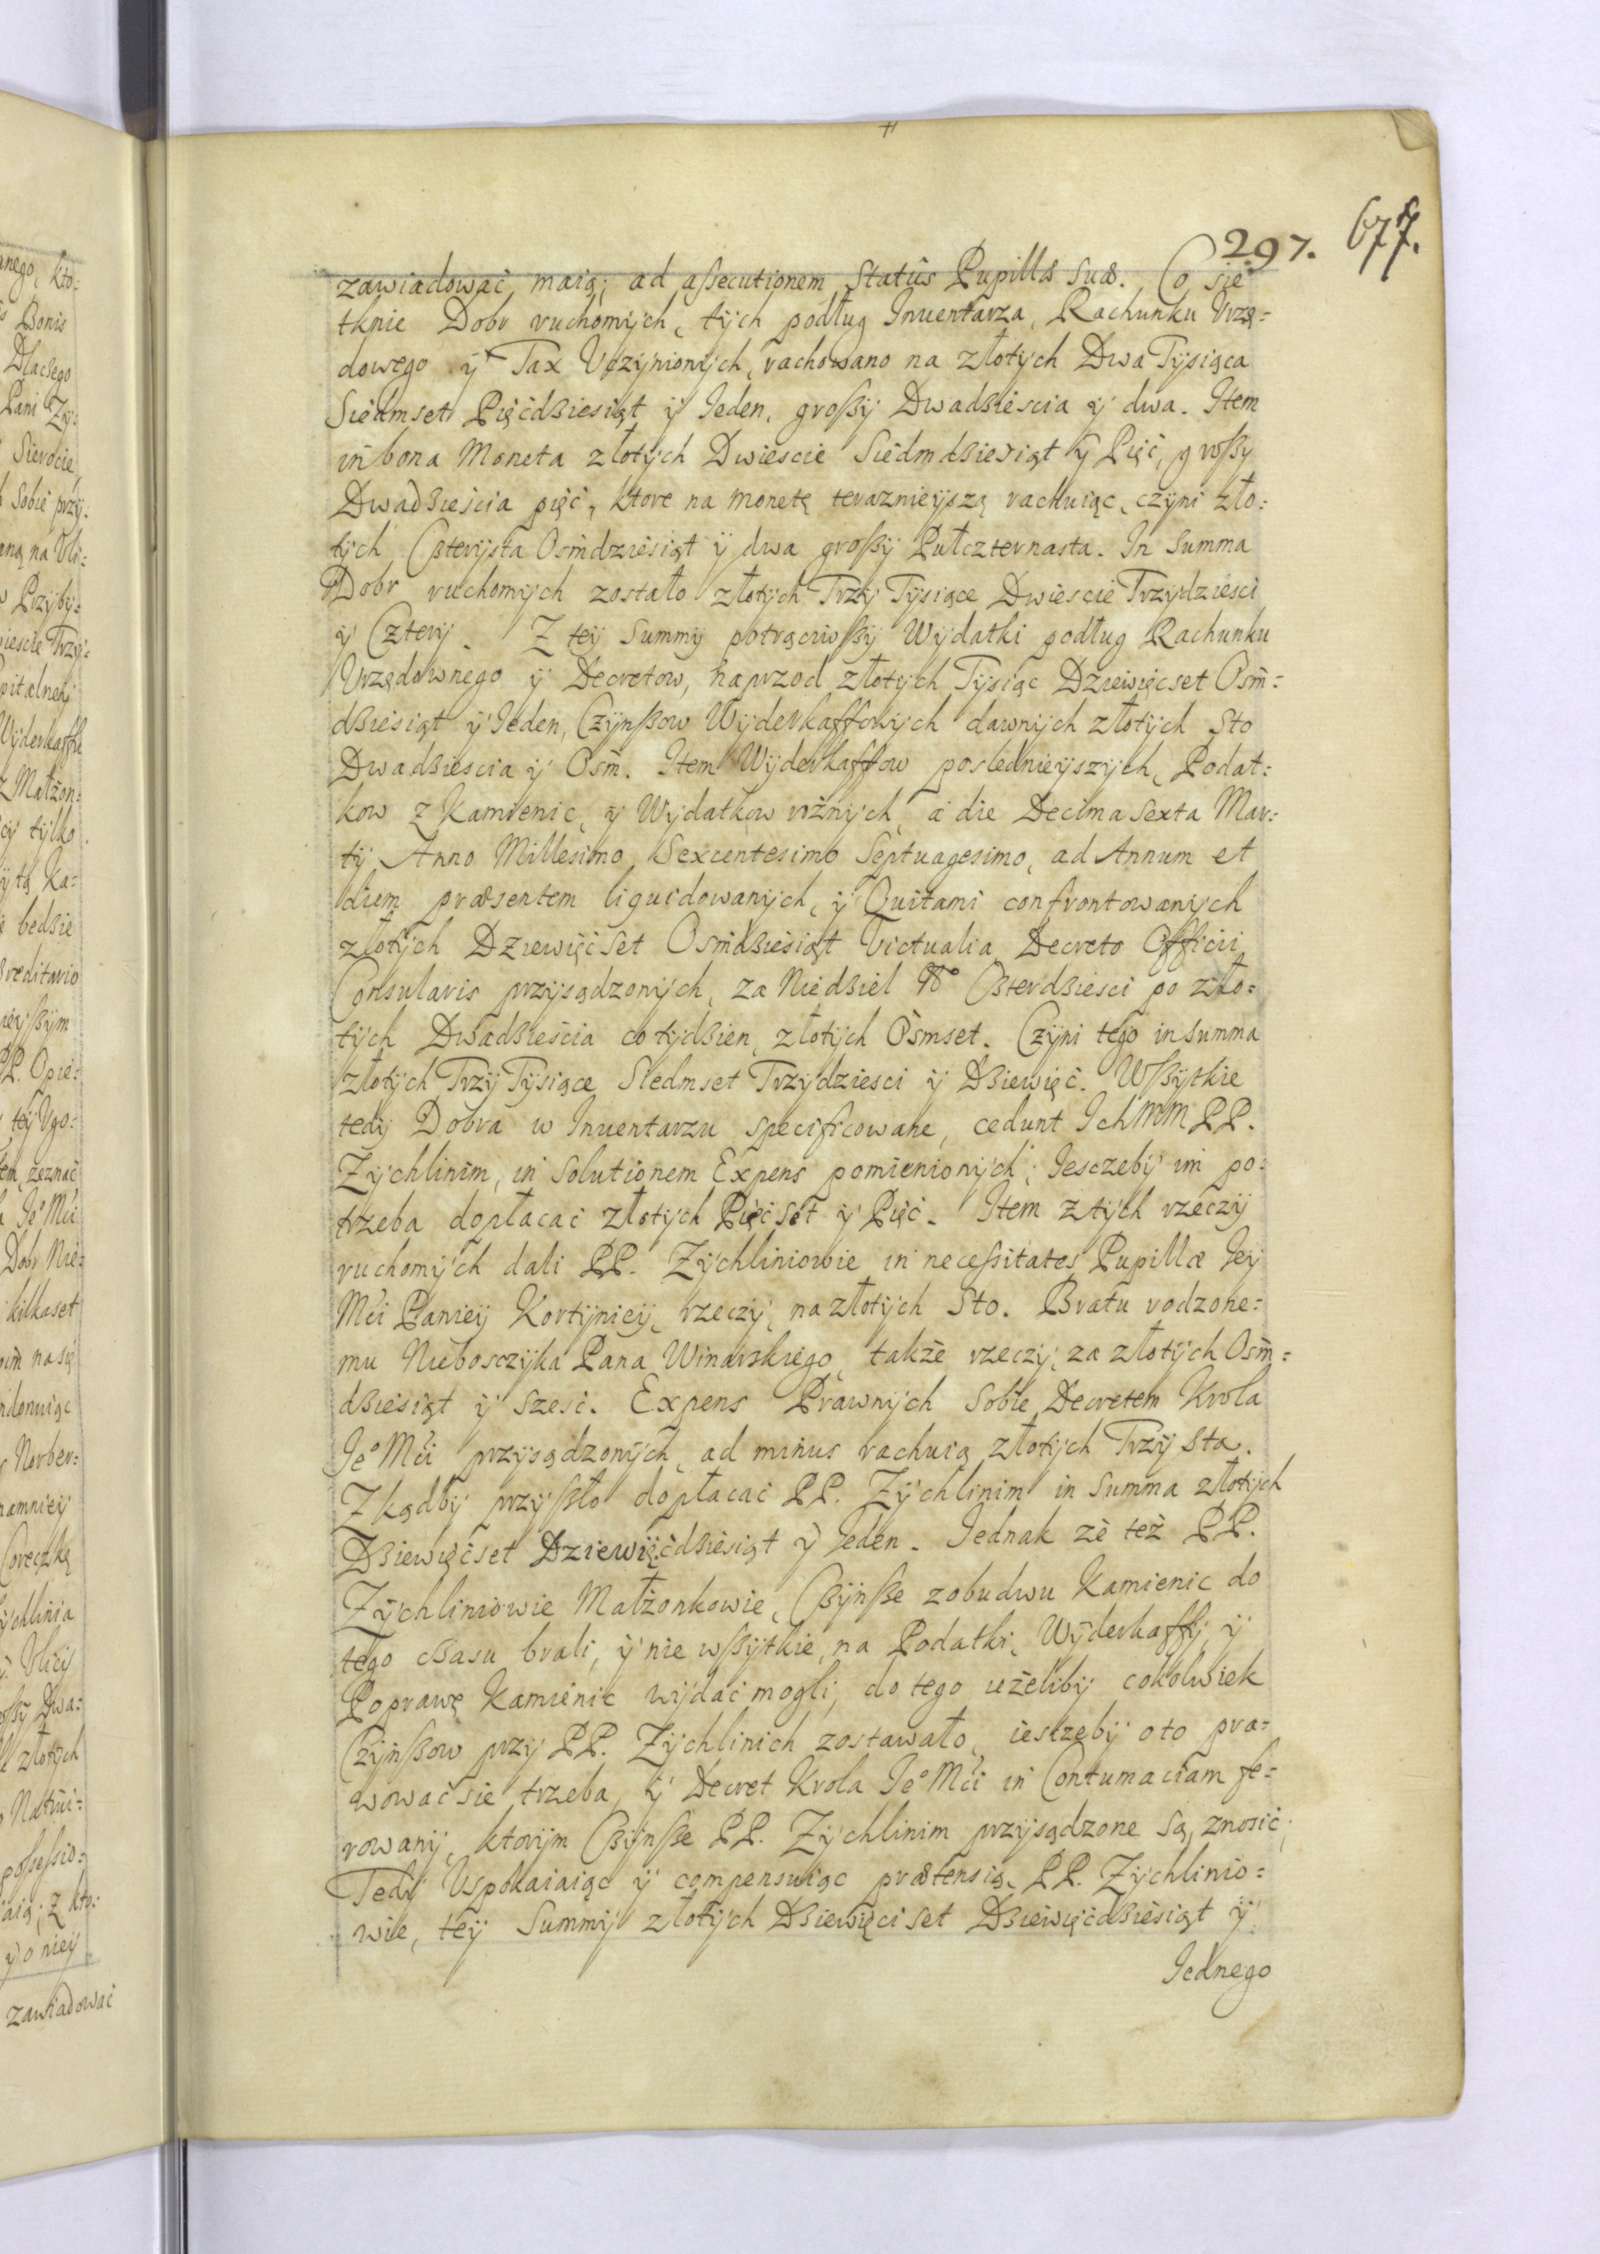 297. 677.
zawiadować maią; ad aßecutionem Statûs Pupillæ Suæ. Co sie
tknie Dobr ruchomÿch, tÿch podług Inuentarza, Rachunku Vrzę=
dowego ÿ Tax Vczÿnionÿch, rachowano na złotÿch Dwa Tÿsiąca
Siedmset Pięćdziesiąt ÿ Ieden, großÿ Dwadzieścia ÿ dwa. Item
in bona Moneta złotÿch Dwieście Siedmdziesiąt ÿ Pięć, großy
Dwadzieścia pięć, ktore na monetę teraznieÿszą rachuiąc, czÿni zło=
tÿch Czterÿsta Osḿdziesiąt ÿ dwa großÿ Pułczternasta. In Summa
Dobr ruchomÿch zostało złotÿch Trzÿ Tÿsiące Dwieście Trzÿdzieści
ÿ Czterÿ. Z teÿ Summÿ potrąciwßÿ Wÿdatki podług Rachunku
Vrzędownego ÿ Decretow, naprzod złotÿch Tÿsiąc Dziewięćset Osm̃=
dziesiąt ÿ Ieden, Czÿnßow Wÿderkaffowÿch dawnÿch złotÿch Sto
Dwadzieścia ÿ Osm̃. Item Wÿderkaffow poslednieÿszÿch, Podat=
kow z Kamienic, ÿ Wÿdatkow rożnÿch, a die Decima Sexta Mar=
tÿ Anno Millesimo Sexcentesimo Septuagesimo, ad Annum et
diem præsentem liquidowanÿch, ÿ Quitami confrontowanÿch
złotÿch Dziewięćset Osḿdziesiąt Victualia Decreto Officii
Consularis przÿsądzonÿch, za Niedziel No Czterdzieści po zło=
tÿch Dwadzieścia co tÿdzien, złotÿch Ośmset. Czÿni tego in Summa
złotÿch Trzÿ Tÿsiące Siedmset Trzÿdzieści ÿ Dziewięć. Wßÿtkie
tedÿ Dobra w Inuentarzu specificowane, cedunt Ich MM PP.
Zÿchlinim, in Solutionem Expens pomienionÿch; Ieszczebÿ im po=
trzeba dopłacać złotÿch Pięćset ÿ Pięć. Item z tÿch rzeczÿ
ruchomÿch dali PP. Zÿchliniowie in neceßitates Pupillæ Ieÿ
Mći Panieÿ Kortÿnieÿ, rzeczÿ, na złotÿch Sto. Bratu rodzone=
mu Niebosczÿka Pana Winarskiego, także rzeczÿ, za złotÿch Osm̃=
dziesiąt ÿ sześć. Expens Prawnÿch Sobie Decretem Krola
Ieº Mći przÿsądzonÿch, ad minus rachuią złotÿch Trzÿ Sta.
Zkądbÿ przÿßło dopłacać PP. Zÿchlinim in Summa złotÿch
Dziewięćset Dziewięćdziesiąt ÿ Ieden. Iednak że też PP.
Zÿchliniowie Małżonkowie, Czÿnße z obudwu Kamienic do
tego czasu brali, ÿ nie wßÿtkie, na Podatki, Wÿderkaffÿ, ÿ
Poprawę Kamienic wÿdać mogli, do tego ieżelibÿ cokolwiek
Czÿnßow przÿ PP. Zÿchlinich zostawało, ieszczebÿ o to pra=
wować sie trzeba, ÿ Decret Krola Ieº Mći in Contumaciam fe=
rowanÿ, ktorÿm Czÿnße PP. Zÿchlinim przÿsądzone są, znosić;
Tedÿ Vspokaiaiąc ÿ compensuiąc prætensią, PP. Zÿchlinio=
wie, teÿ Summÿ złotÿch Dziewięciset Dziewięćdziesiąt ÿ
Iednego